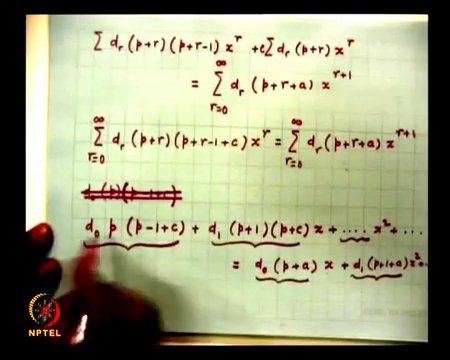 Σ d_r (p+r)(p+r-1) x^r + c Σ d_r (p+r) x^r
= Σ_{r=0}^{∞} d_r (p+r+a) x^{r+1}
Σ_{r=0}^{∞} d_r (p+r)(p+r-1+c) x^r = Σ_{r=0}^{∞} d_r (p+r+a) x^{r+1}
d_0 p (p-1+c) + d_1 (p+1)(p+c) x + .... x^2 + ...
= d_0 (p+a) x + d_1 (p+1+a) x^2 ..
NPTEL